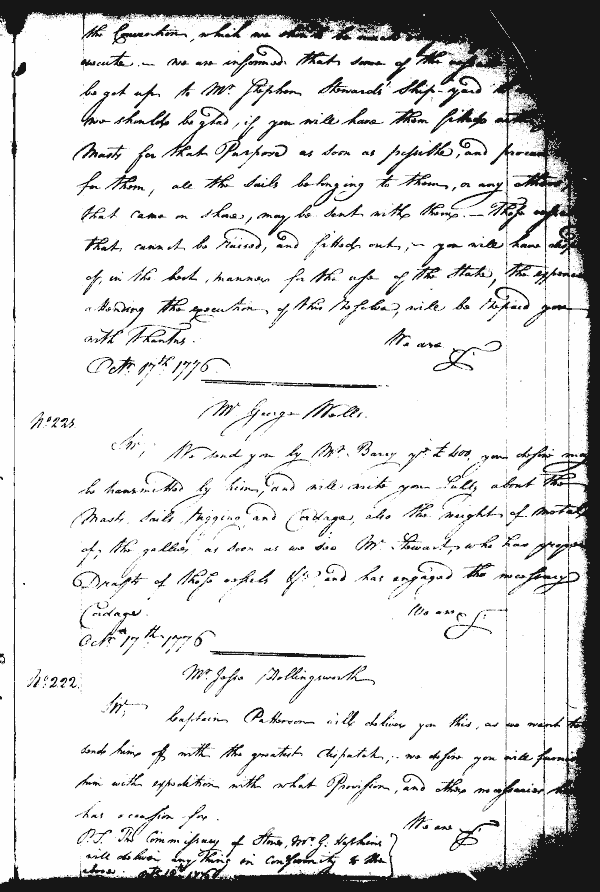 the Convention, which we
execute. — we are informed that some of the
be got up to Mr. Stephen Stewards Ship-yard
we should be glad, if you will have them fitted
Masts for that Purpose as soon as possible, and
for them, all the Sails belonging to them, or any others,
that came on shore, may be sent with them. — Those
that cannot be raised, and fitted out, — you will have
of, in the best manner for the use of the State, the expences
attending the execution of this will be repaid you
with Thanks. We are &c.
Octr. 17th 1776.
Mr. George Wells.
No. 221.
Sir, We send you by Mr. Barry £400, you desire may
be transmitted by him, and will write you fully about the
Masts, Sails, Rigging and Cordage, also the weight of
of the gallies as soon as we see Mr. Stewart, who has
Drafts of those vessels &c. and has engaged the necessary
Cordage. We are &c.
Octr. 17th 1776
Mr. Jesse Hollingsworth
No. 222.
Sir, Captain Patterson will deliver you this, as we want to
send him off with the greatest dispatch, we desire you will furnish
him with expedition with what Provision, and other necessaries he
has occasion for. We are &c.
P.S. The Commissary of Stores, Mr. G. Hopkins
will deliver anything in conformity to the
above.